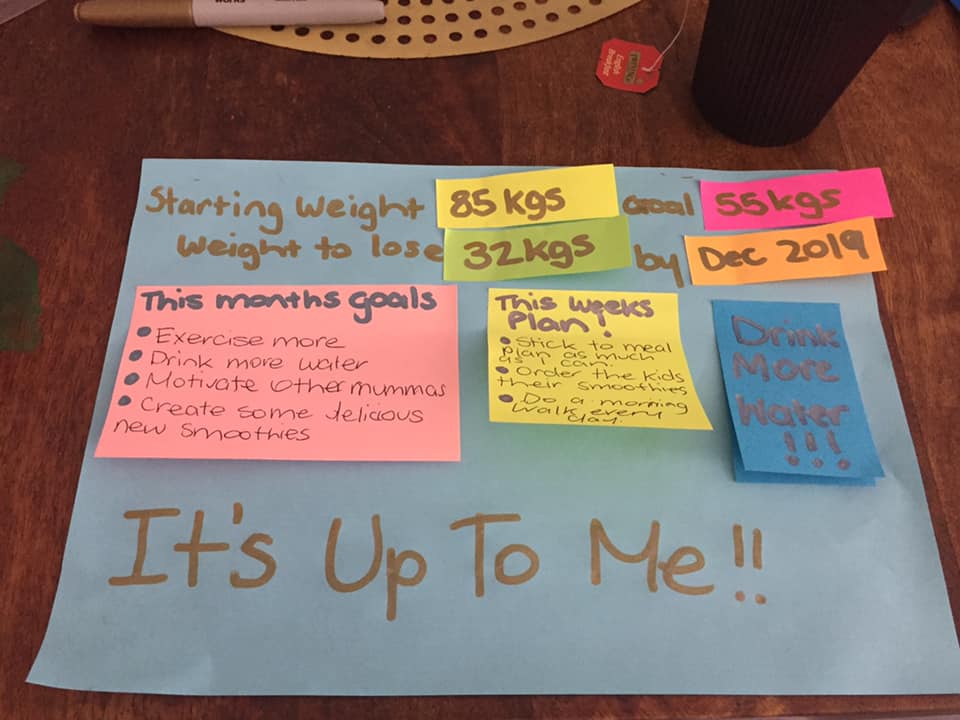 works
English
Breakfast
Starting Weight 85 kgs Goal 55 kgs
Weight to lose 32 kgs by Dec 2019
This months goals
• Exercise more
• Drink more water
• Motivate other mummas
• Create some delicious
new smoothies
This weeks
Plan!
• Stick to meal
plan as much
as I can.
• Order the kids
their smoothies
• Do a morning
walk every
day.
Drink
More
Water
!!!
It's Up To Me!!